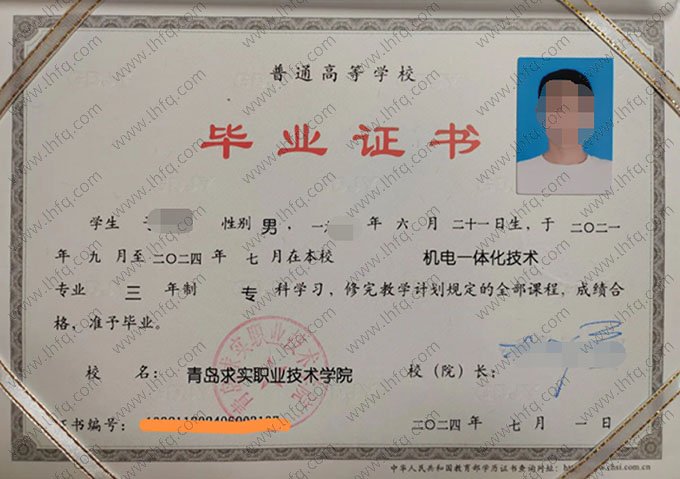 普通高等学校
毕业证书
学生 性别 男，一 年 六月 二十一日生，于 二〇二一
年 九 月至 二〇二四 年 七 月在本校 机电一体化技术
专业 三 年制 专 科学习，修完教学计划规定的全部课程，成绩合
格，准予毕业。
校 名： 青岛求实职业技术学院 校（院）长：
证书编号： 二〇二四 年 七 月 一 日
中华人民共和国教育部学历证书查询网址：http://www.chsi.com.cn
www.lhfq.com